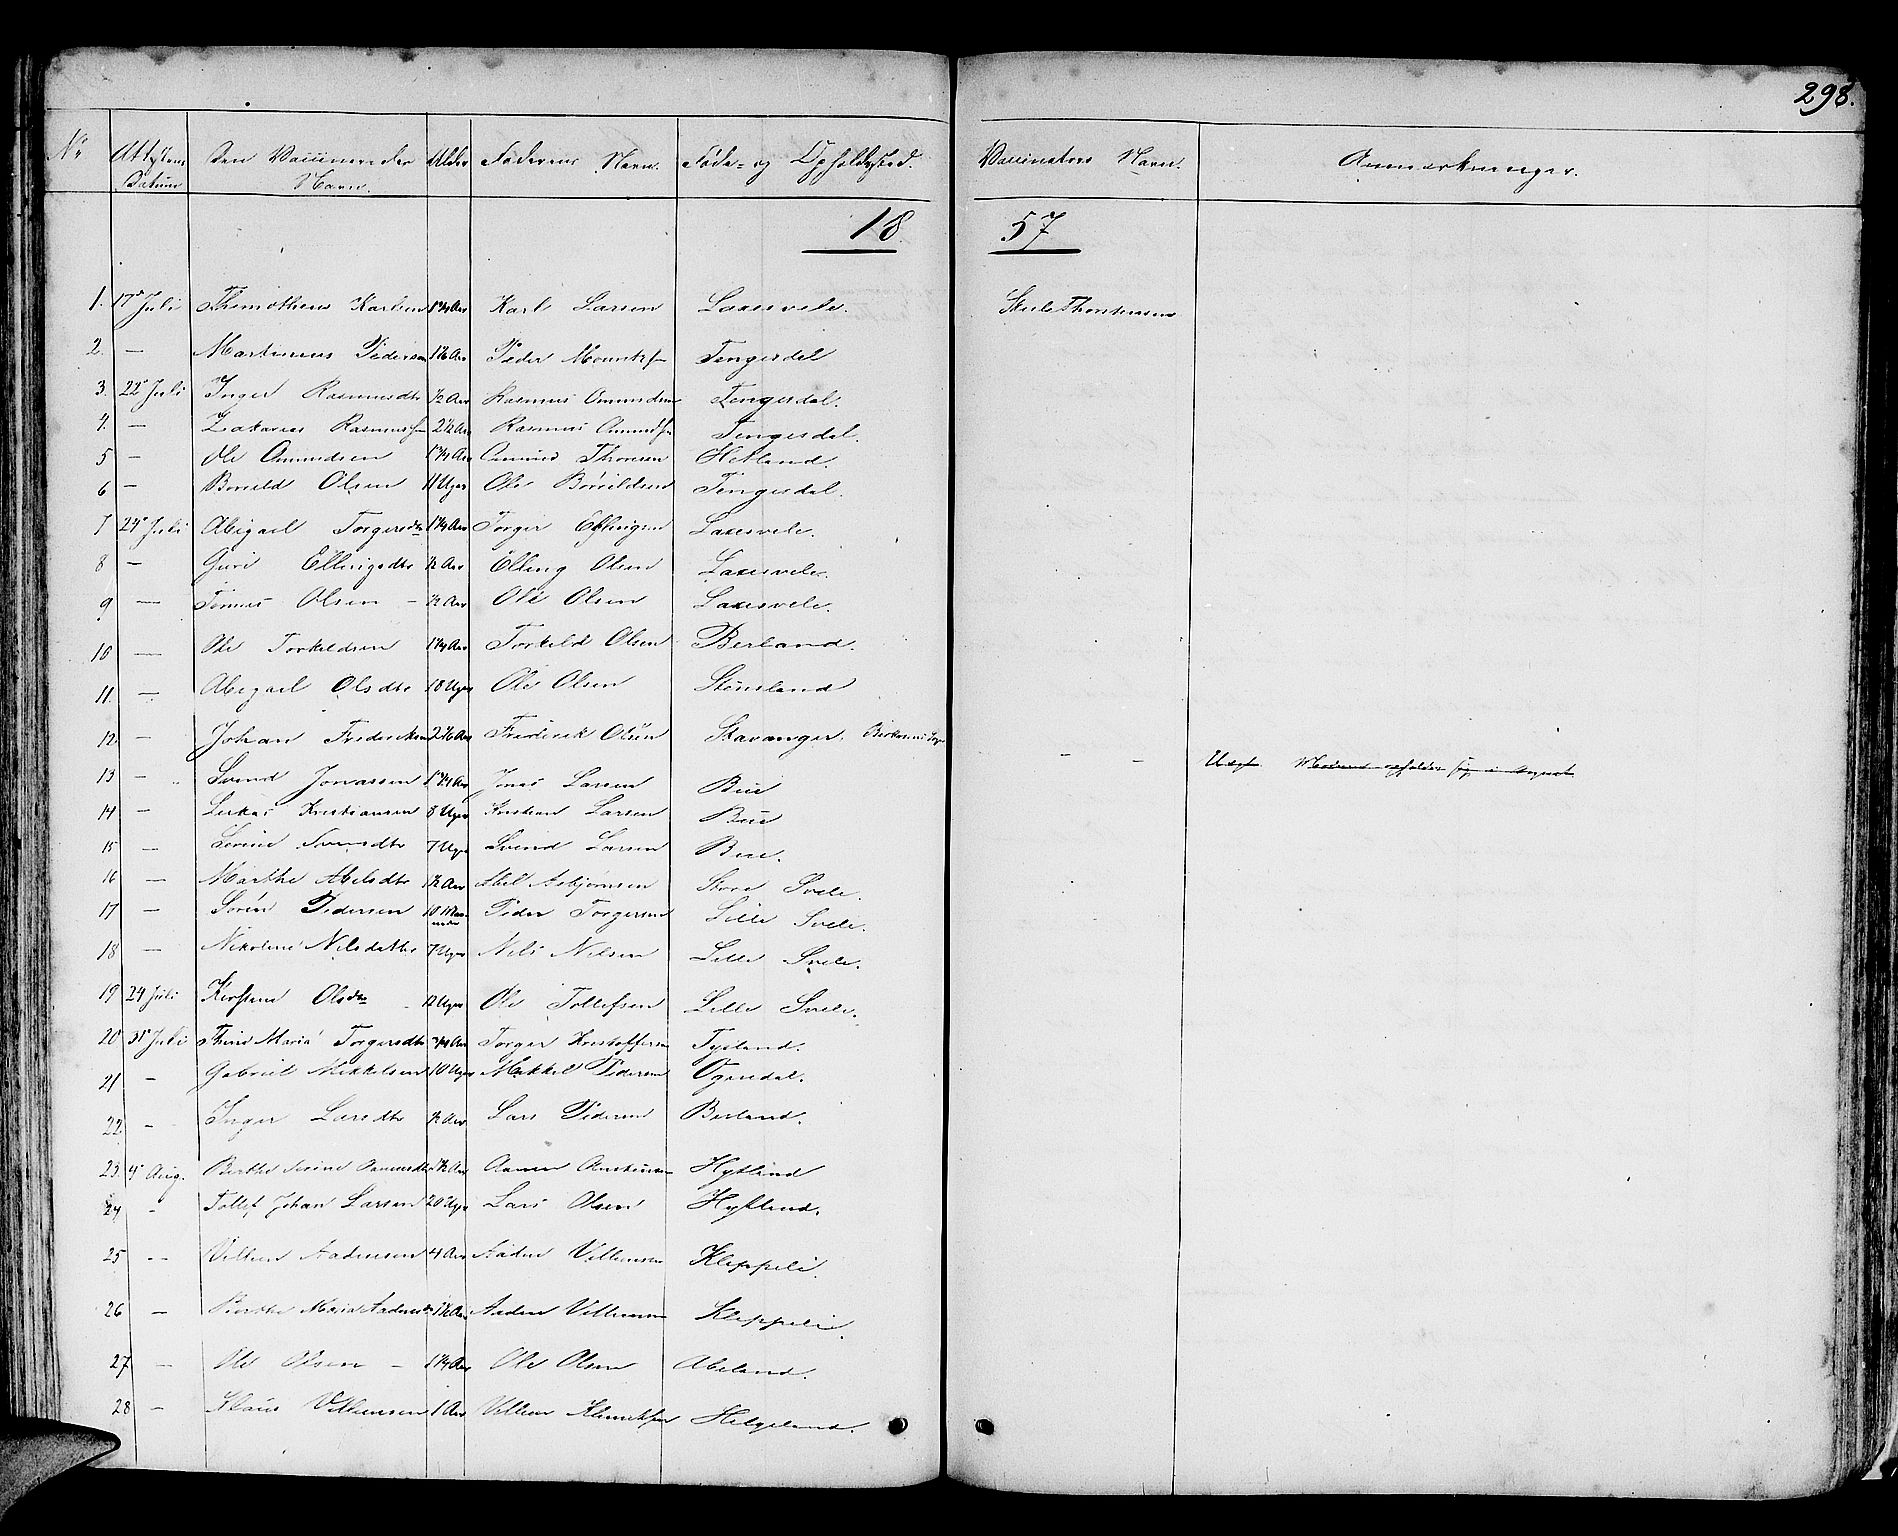 298.
No Attestens Datum Den Vaccineredes Navn. Alder Faderens Navn. Føde- og Opholdssted. Vaccinators Navn. Anmærkninger.
18 57
1. 17de Juli Thimotheus Karlsen 1 3/4 Aar Karl Larsen Laxesvele.
2. — Martinus Pedersen Aar Peder Tengesdal
3. 22de Juli Inger Rasmusdtr 1/2 Aar Rasmus Omundsen Tengesdal.
4. — Zakarias Rasmussen 2 1/2 Aar Rasmus Omundsen Tengesdal.
5 — Ole Omundsen 1 3/4 Aar Omund Thorsen Hetland.
6 — Boreld Olsen 11 Uger Ole Tengesdal.
7 24de Juli Abigael Torgersdtr 1 1/4 Aar Torger Ellingsen Laxesvele.
8 — Guri Ellingsdtr 1/2 Aar Elling Olsen Laxesvele.
9 — Tønnes Olsen — 1/2 Aar Ole Olsen Laxesvele.
10 — Ole Torkeldsen 1 1/4 Aar Torkeld Olsen Berland.
11. — Abigael Olsdtr 18 Uger Ole Olsen Stensland
12. — Johan Frederiksen Aar Frederik Olsen Stavanger. — — Uægt. Moderen opholder sig i
13 — Svend Jonassen 1 3/4 Aar Jonas Larsen Bue
14 — Lukas Kristiansen 8 Uger Kristian Larsen Bue
15 — Serine Svendsdtr 7 Uger Svend Larsen Bue.
16 — Marthe Abelsdtr 1/2 Aar Abel Asbjørnsen Store Svele.
17 — Søren Pedersen 10 Maaneder Peder Torgersen Lille Svele.
18 — Nikoline Nilsdatter 7 Uger Nils Nilsen Lille Svele.
19 24 Juli Kirstine Olsdtr 12 Uger Ole Tollefsen Lille Svele.
20 31te Juli Maria Torgersdtr 3/4 Aar Torger Kristoffersen Tysland.
21 — Gabriel Mikkelsen 10 Uger Mikkel Pedersen Ognedal.
22. — Inger Larsdtr 1/2 Aar Lars Pedersen Berland.
23. 4de Aug. Berthe Serine 1/2 Aar Hytland
24 — Tollef Johan Larsen 20 Uger Lars Olsen Hytland.
25 — Villum Aadensen 4 Aar Aaden Villumsen Kleppeli.
26 — Berthe Maria Aadensdtr 1 1/2 Aar Aaden Villumsen Kleppeli.
27 — Ole Olsen — 1 1/4 Aar Ole Olsen Abeland.
28 — Klaus Villumsen 1 Aar Villum Helgeland.